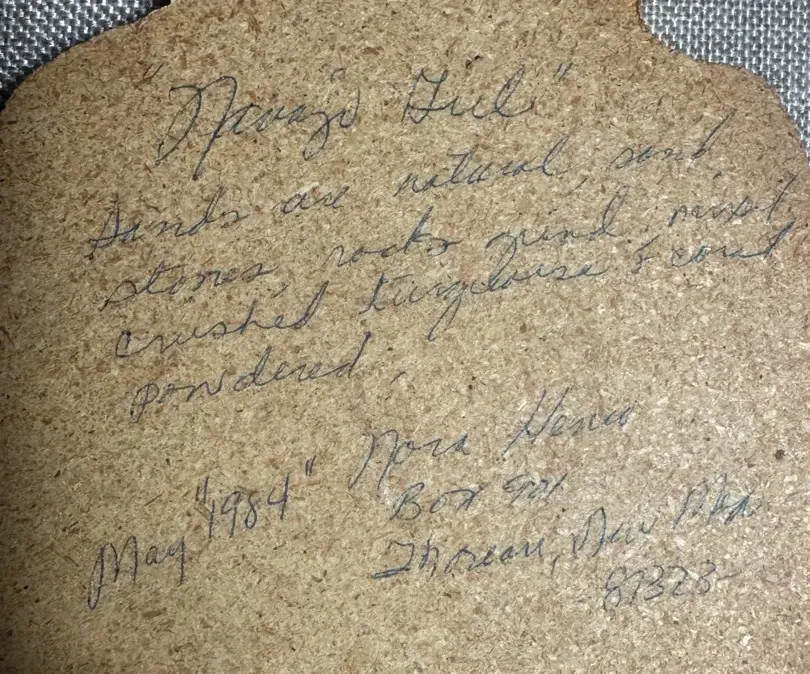 "Navajo Girl"
Sands are natural, sand
stones, rocks grind, mixed
crushed turqlouise & coral
powdered.
Nora Henio
May "1984"
Box 901
Thoreau, New Mex
87323